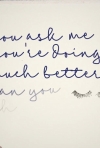 ou ask me
ou're doing
uch better
an you